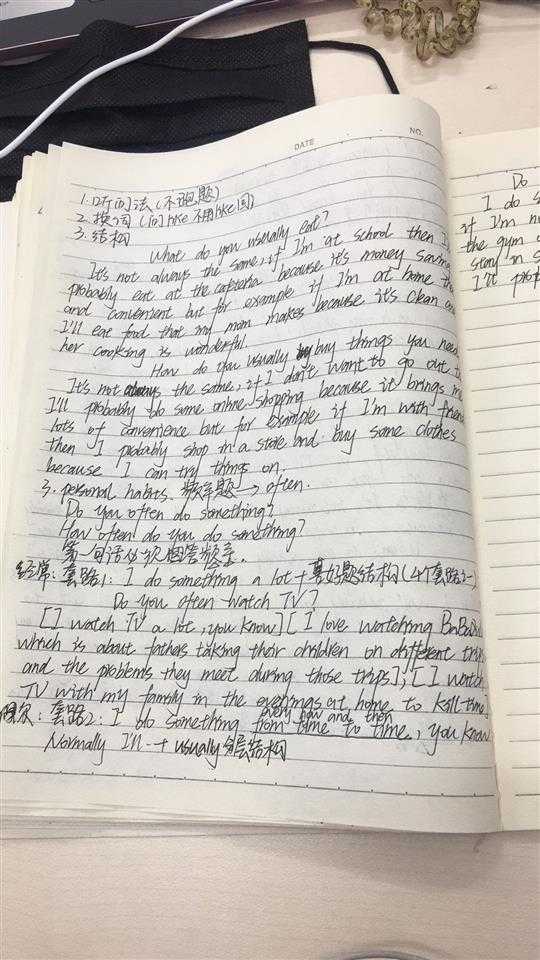 DATE
NO.
1. 听问法 (不跑题)
2. 换词 (问like不用like回)
3. 结构
What do you usually eat?
It's not always the same, if I'm at school then I
probably eat at the cafeteria because it's money saving
and convenient but for example if I'm at home the
I'll eat food that my mom makes because it's clean an
her cooking is wonderful.
How do you usually buy things you need
It's not always the same, if I don't want to go out t
I'll probably do some online shopping because it brings me
lots of convenience but for example if I'm with friend
then I probably shop in a store and buy some clothes
because I can try things on.
3. personal habits. 频率题 → often.
Do you often do something?
How often do you do something?
第一句话必须回答频率.
经常: 套路1: I do something a lot + 喜好题结构 (4个套路之一)
Do you often watch TV?
[I watch TV a lot, you know] [I love watching BaBa
which is about fathers taking their children on different trip
and the problems they meet during those trips]; [I watch
TV with my family in the evenings at home to kill time
every now and then
偶尔: 套路2: I do something from time to time, you know
Normally I'll → usually 分层结构
Do
I do s
if I'm
the gym
stay in s
I'll pro